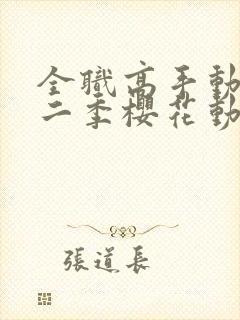 全職高手動
二季櫻花動
張道長